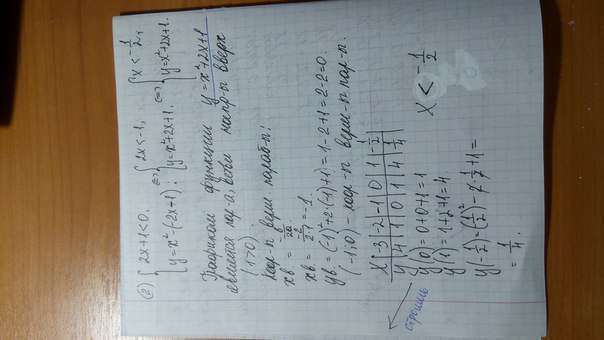 ② { 2x+1<0. <=> { 2x<-1, <=> { x < -1/2,
{ y=x²-(2x+1); { y=x²+2x+1. { y=x²+2x+1.
Графиком функции y=x²+2x+1
является пар-а, ветви напр-ы вверх
(1>0).
Коор-ы верш парабы:
xв = -b/2a
xв = -2/2·1 = -1.
yв = (-1)²+2·(-1)+1 = 1-2+1=2-2=0.
(-1;0) - коор-ы верш-ы пар-ы.
X | -3 | -2 | -1 | 0 | 1 | -1/2
y | 4 | 1 | 0 | 1 | 4 | 1/4
y(0) = 0+0+1=1
y(1) = 1+2+1=4
y(-1/2) = (1/2)² - 2·1/2+1 =
= 1/4.
x < -1/2
строишь